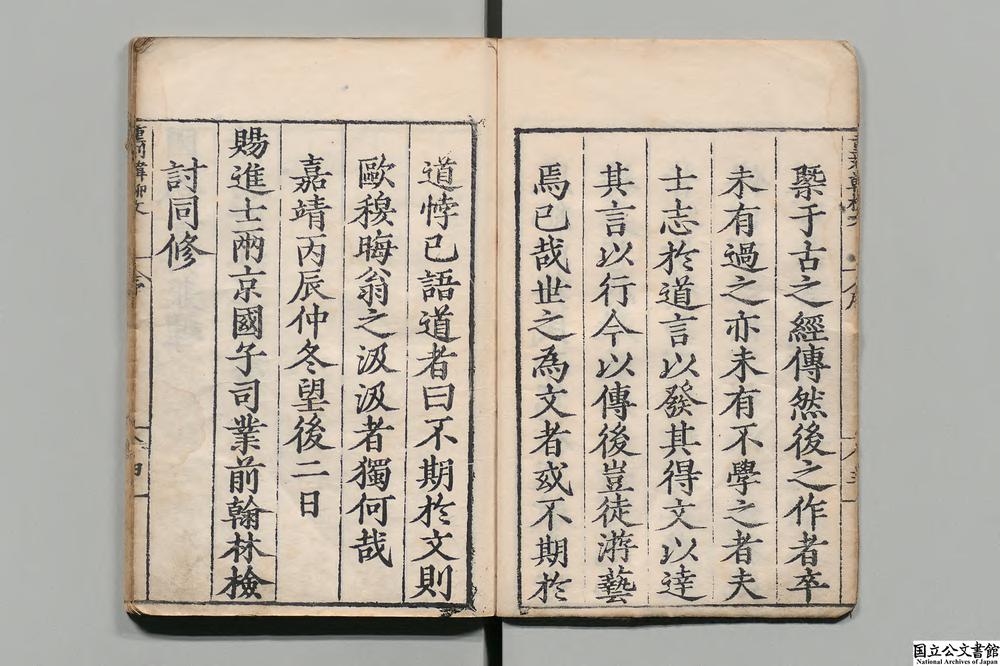 槩于古之經傳然後之作者卒
未有過之亦未有不學之者夫
士志於道言以發其得文以達
其言以行今以傳後豈徒游藝
焉已哉世之為文者或不期於
道悖已語道者曰不期於文則
歐穆晦翁之汲汲者獨何哉
嘉靖丙辰仲冬望後二日
賜進士兩京國子司業前翰林檢
討同修
國立公文書館
National Archives of Japan